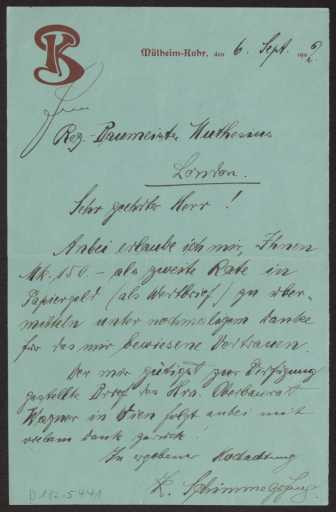 BK
Mülheim-Ruhr, den 6. Sept. 190
Herrn
Reg.-Baumeister Muthesius
London.
Sehr geehrter Herr!
Anbei erlaube ich mir, Ihnen
Mk. 150.– als zweite Rate in
Papiergeld (als Wertbrief) zu über-
mitteln unter nochmaligem Danke
für das mir bewiesene Vertrauen.
Der mir gütigst zur Verfügung
gestellte Brief des Hrn. Oberbaurat
Wagner in Wien folgt anbei mit
vielem Dank zurück.
In ergebener Hochachtung
K.
D 112-5441